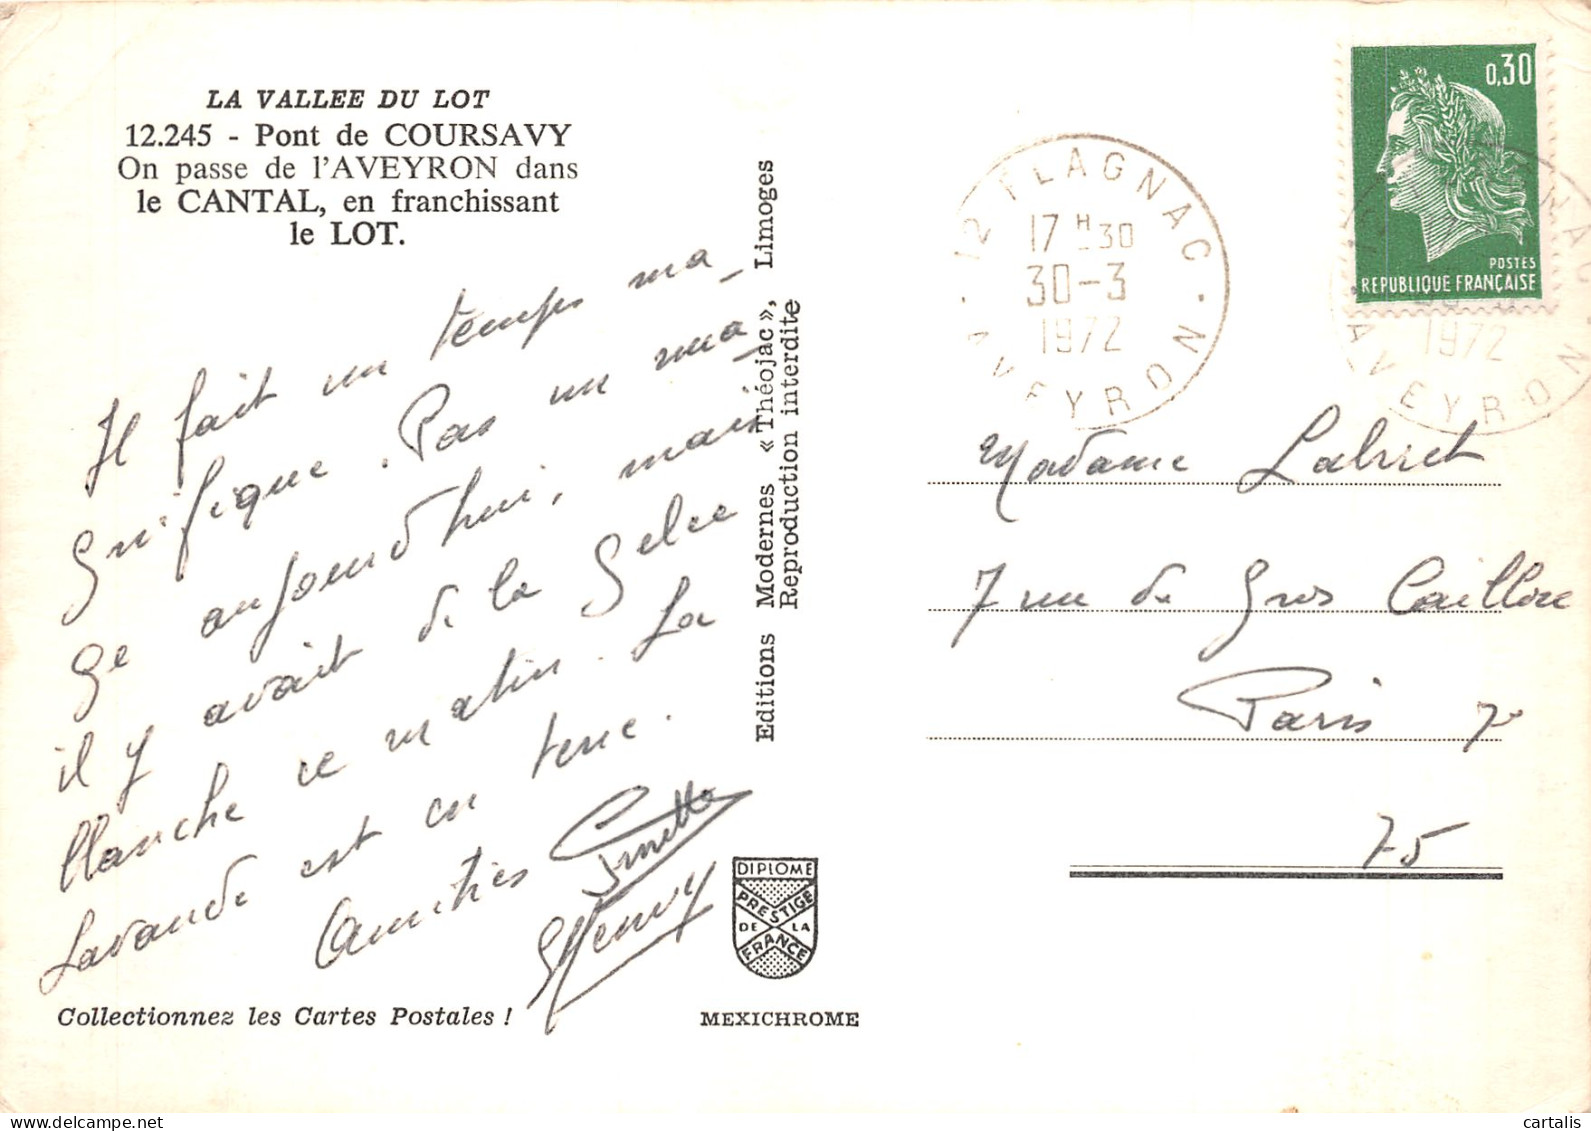 LA VALLEE DU LOT
12.245 - Pont de COURSAVY
On passe de l'AVEYRON dans
le CANTAL, en franchissant
le LOT.
Il fait un temps ma_
gnifique. Pas un nua_
ge aujourd'hui, mais
il y avait de la Gelée
blanche ce matin. La
Lavande est en terre.
Amitiés Ginette
Henry
Collectionnez les Cartes Postales !
Editions Modernes «Théojac», Limoges
Reproduction interdite
DIPLOME
PRESTIGE
DE LA
FRANCE
MEXICHROME
12 FLAGNAC
17 H 30
30-3
1972
AVEYRON
0,30
POSTES
REPUBLIQUE FRANÇAISE
1972
AVEYRON
Madame
7 rue de Gros Caillou
Paris 7e
75
cartalis